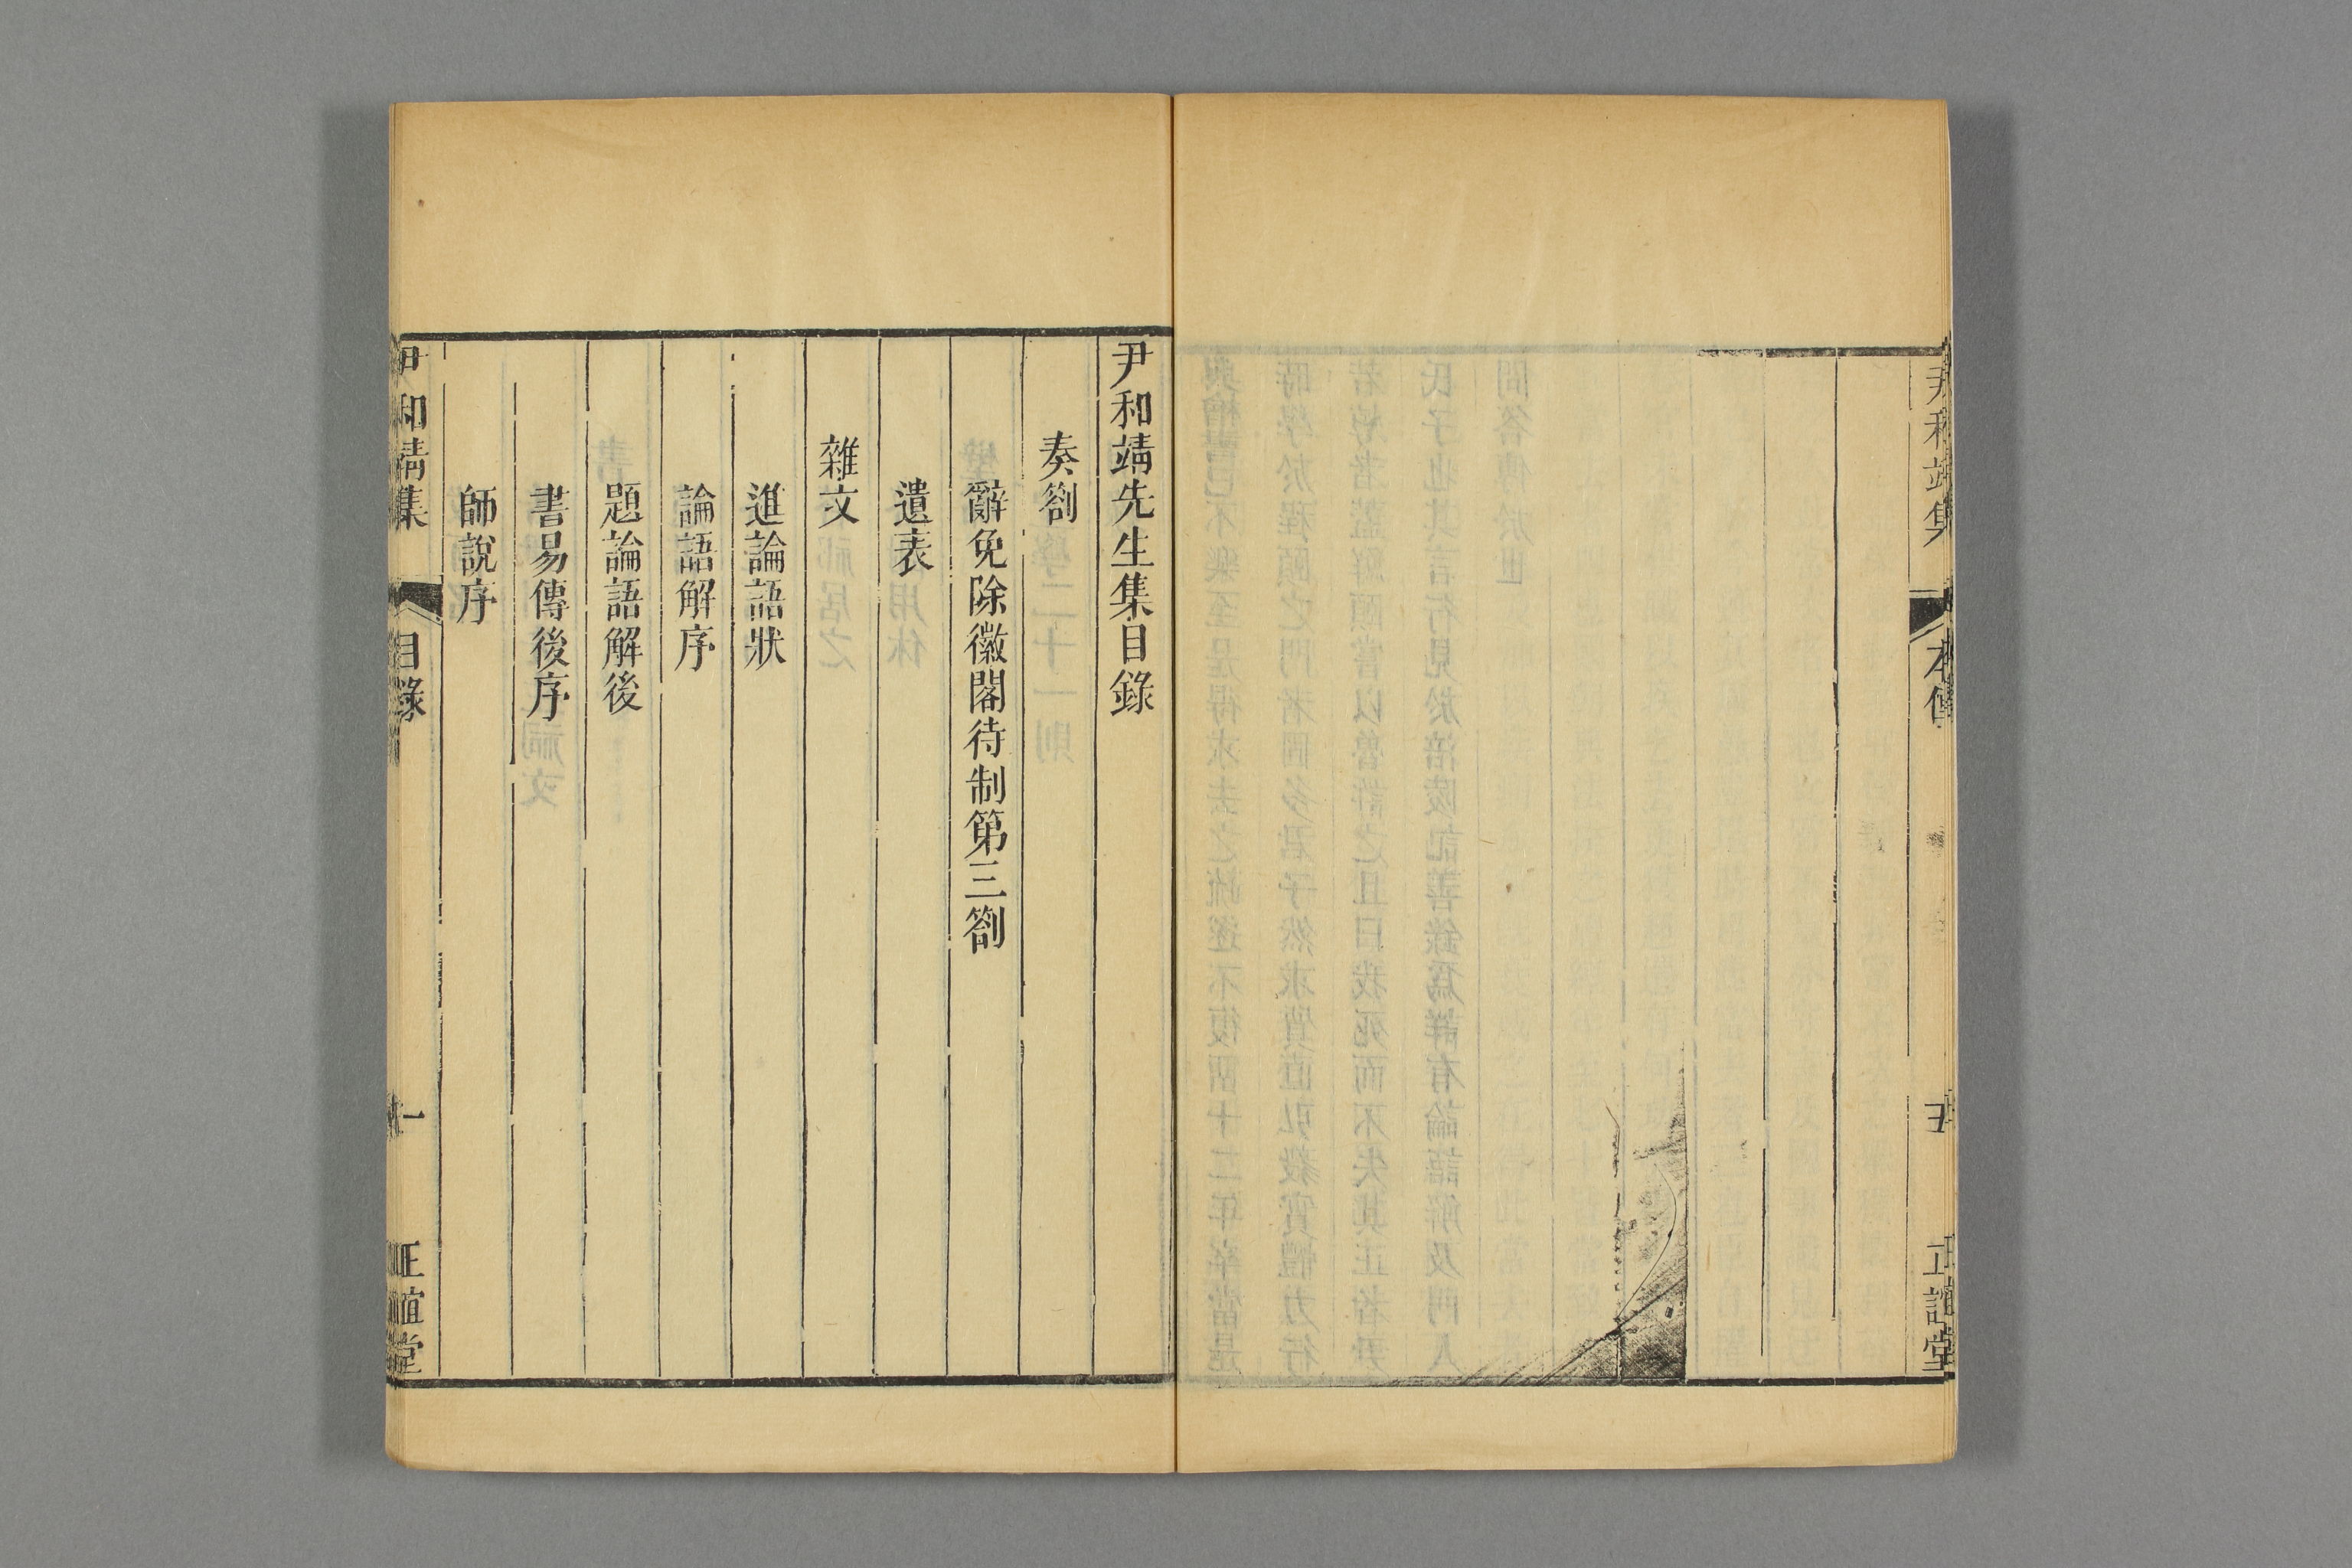 尹和靖集
本傳
五
正誼堂
尹和靖先生集目錄
奏劄
辭免除徽閣待制第三劄
遺表
雜文
進論語狀
論語解序
題論語解後
書易傳後序
師說序
尹和靖集
目錄
一
正誼堂